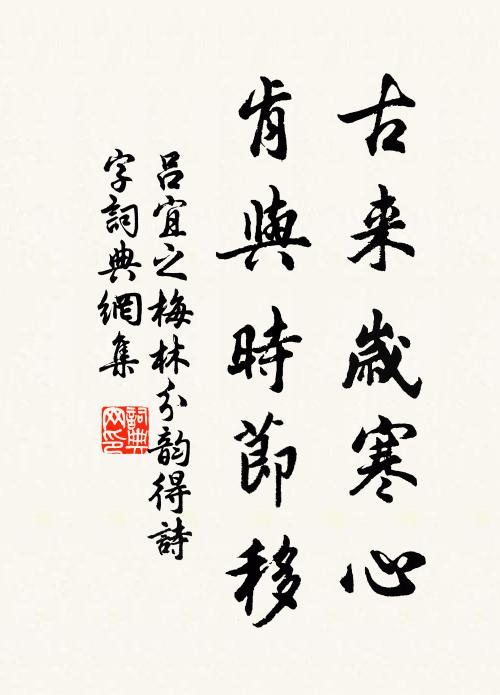 古来歲寒心
肯與時節移
呂宜之梅林分韵得詩
字詞典網集
詞典网印